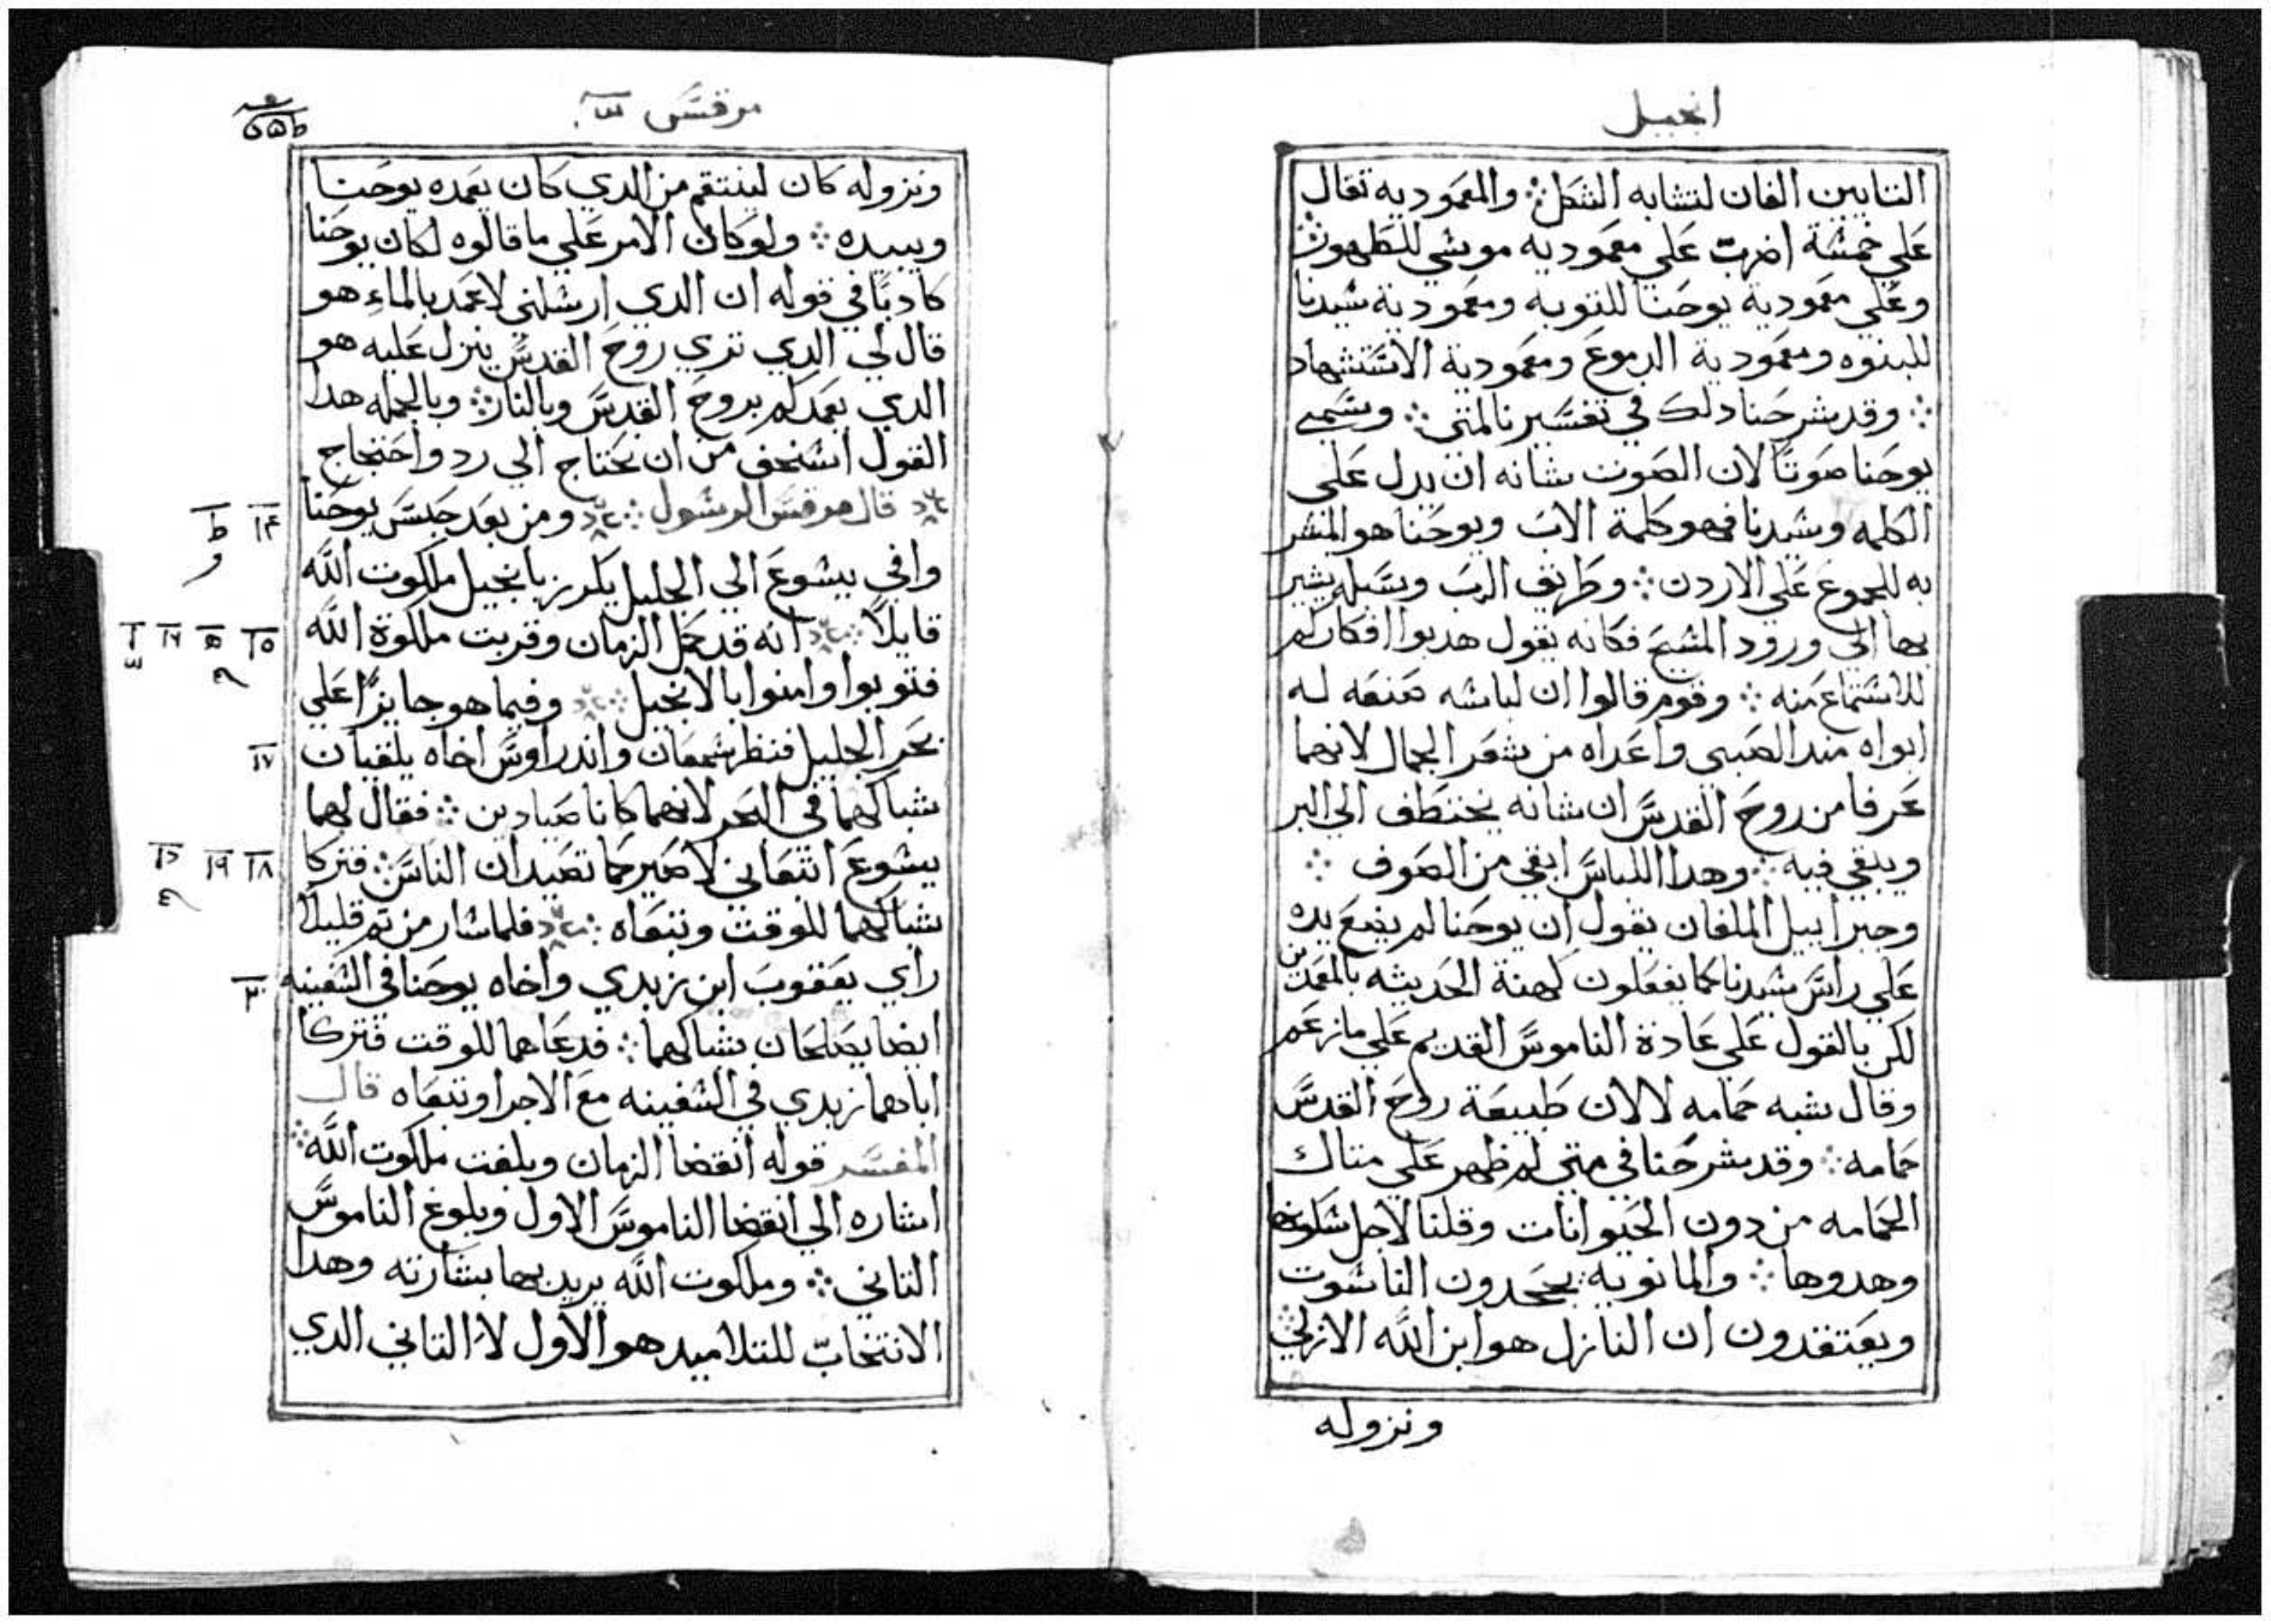 انجيل
التايبين الفان لتشابه الشكل ⁘ والمعموديه تقال
علي خمسة اضرب علي معموديه موسي للتطهور ⁘
وعلي معمودية يوحنا للتوبه ومعمودية سيدنا
للبنوه ومعمودية الدموع ومعمودية الاستشهاد
⁘ وقد شرحنا دلك في تفسيرنا لمتي ⁘ وسمي
يوحنا صوتا لان الصوت شانه ان يدل علي
الكلمه وسيدنا فهو كلمة الاب ويوحنا هو المبشر
به للجموع علي الاردن ⁘ وطريق الرب وسبله يشير
بها الي ورود المسيح فكانه يقول هدبوا افكاركم
للاستماع منه ⁘ وقوم قالوا ان لباسه صنعه له
ابواه مند الصبي واعداه من شعر الجمال لانهما
عرفا من روح القدس ان شانه يختطف الي البر
ويبقي فيه ⁘ وهدا اللباس ابقي من الصوف ⁘
وجبراييل الملفان يقول ان يوحنا لم يضع يده
علي راس سيدنا كما يفعلون كهنة الحديثه بالمعمدين
لكن بالقول علي عادة الناموس القديم علي ما زعم
وقال شبه حمامه لا لان طبيعة روح القدس
حمامه ⁘ وقد شرحنا في متي لم ظهر علي مثال
الحمامه من دون الحيوانات وقلنا لاجل سكونها
وهدوها ⁘ والمانويه يجحدون الناسوت
ويعتقدون ان النازل هو ابن الله الازلي ⁘
ونزوله
مرقس
ونزوله كان لينتقم من الدي كان يعمده يوحنا
ويبيده ⁘ ولو كان الامر علي ما قالوه لكان يوحنا
كادبا في قوله ان الدي ارسلني لاعمد بالماء هو
قال لي الدي تري روح القدس ينزل عليه هو
الدي يعمدكم بروح القدس وبالنار ⁘ وبالجمله هدا
القول اسخف من ان يحتاج الي رد واحتجاج
قال مرقس الرسول ⁘ ومن بعد حبس يوحنا
وافي ييسوع الي الجليل يكرز بانجيل ملكوت الله
قايلا ⁘ انه قد كمل الزمان وقربت ملكوة الله
فتوبوا وامنوا بالانجيل ⁘ وفيما هو جايزا علي
بحر الجليل فنظر شمعان واندراوس اخاه يلقيان
شباكهما في البحر لانهما كانا صيادين ⁘ فقال لهما
ييسوع اتبعاني لاصيركما تصيدان الناس ⁘ فتركا
شباكهما للوقت وتبعاه ⁘ فلما سار من تم قليلا
راي يعقوب ابن زبدي واخاه يوحنا في السفينه
ايضا يصلحان شباكهما ⁘ فدعاهما للوقت فتركا
اباهما زبدي في السفينه مع الاجرا وتبعاه قال
المفسر قوله انقضا الزمان وبلغت ملكوت الله ⁘
اشاره الي انقضا الناموس الاول وبلوغ الناموس
التاني ⁘ وملكوت الله يريد بها بشارته وهدا
الانتخاب للتلاميد هو الاول لا التاني الدي